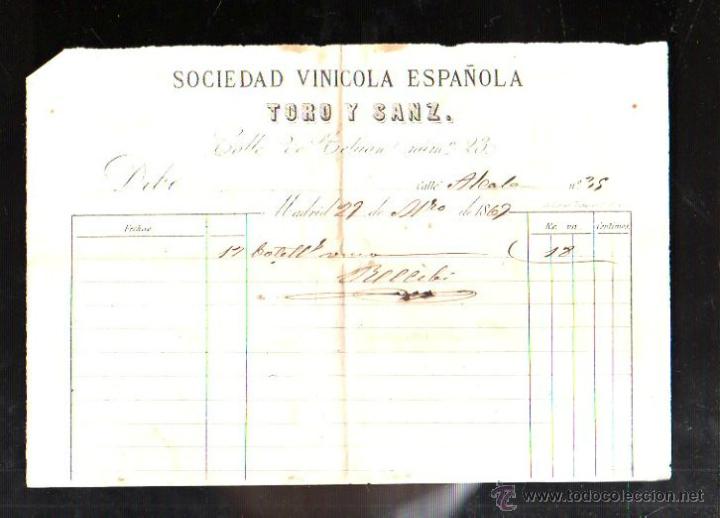 SOCIEDAD VINICOLA ESPAÑOLA
TORO Y SANZ.
Calle de Tetuan, num.º 23.
Debe Calle Alcala nº 35
Madrid 27 de de 1867
Fechas Rs. vn. Centimos
12 botellˢ vino 18
Recibi
www.todocoleccion.net